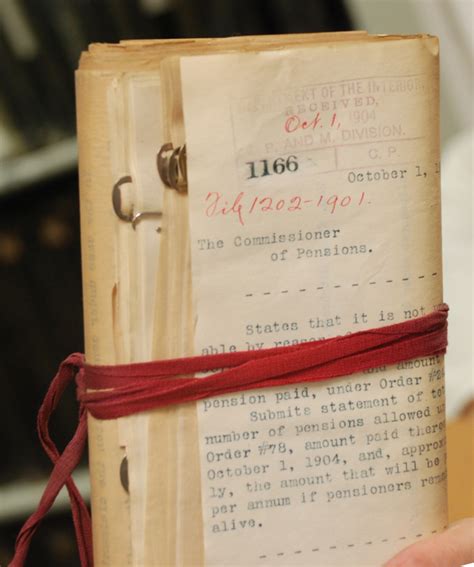 DEPARTMENT OF THE INTERIOR
RECEIVED,
Oct. 1, 1904
P. AND M. DIVISION.
1166 C. P.
October 1, 1
File 1202-1901.
The Commissioner
of Pensions.
- - - - - - - - - - - - -
States that it is not
able by reason of
and amount
pension paid, under Order
Submits statement of
number of pensions allowed
Order #78, amount paid
October 1, 1904, and,
ly, the amount that will be
per annum if pensioners
alive.
- - - - - - - - -